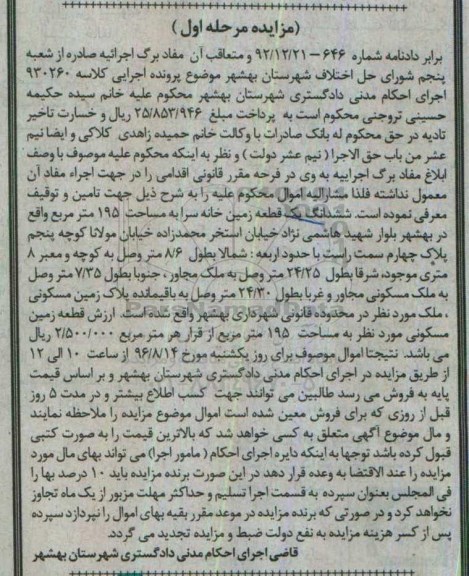 (مزایده مرحله اول)
برابر دادنامه شماره ۶۴۶-۹۲/۱۲/۲۱ و متعاقب آن مفاد برگ اجرائیه صادره از شعبه
پنجم شورای حل اختلاف شهرستان بهشهر موضوع پرونده اجرایی کلاسه ۹۳۰۲۶۰
اجرای احکام مدنی دادگستری شهرستان بهشهر محکوم علیه خانم سیده حکیمه
حسینی تروجنی محکوم است به پرداخت مبلغ ۲۵/۸۵۳/۹۴۶ ریال و خسارت تاخیر
تادیه در حق محکوم له بانک صادرات با وکالت خانم حمیده زاهدی کلاکی و ایضا نیم
عشر من باب حق الاجرا (نیم عشر دولت) و نظر به اینکه محکوم علیه موصوف با وصف
ابلاغ مفاد برگ اجراییه به وی در فرجه مقرر قانونی اقدامی را در جهت اجراء مفاد آن
معمول نداشته فلذا مشارالیه اموال محکوم علیه را به شرح ذیل جهت تامین و توقیف
معرفی نموده است. ششدانگ یک قطعه زمین خانه سرا به مساحت ۱۹۵ متر مربع واقع
در بهشهر بلوار شهید هاشمی نژاد خیابان استخر محمدزاده خیابان مولانا کوچه پنجم
پلاک چهارم سمت راست با حدود اربعه: شمالا بطول ۸/۶ متر وصل به کوچه و معبر ۸
متری موجود، شرقا بطول ۲۴/۲۵ متر وصل به ملک مجاور، جنوبا بطول ۷/۳۵ متر وصل
به ملک مسکونی مجاور و غربا بطول ۲۴/۳۰ متر وصل به باقیمانده پلاک زمین مسکونی
، ملک مورد نظر در محدوده قانونی شهرداری بهشهر واقع شده است. ارزش قطعه زمین
مسکونی مورد نظر به مساحت ۱۹۵ متر مربع از قرار هر متر مربع ۲/۵۰۰/۰۰۰ ریال
می باشد. نتیجتا اموال موصوف برای روز یکشنبه مورخ ۹۶/۸/۱۴ از ساعت ۱۰ الی ۱۲
از طریق مزایده در اجرای احکام مدنی دادگستری شهرستان بهشهر و بر اساس قیمت
پایه به فروش می رسد طالبین می توانند جهت کسب اطلاع بیشتر و در مدت ۵ روز
قبل از روزی که برای فروش معین شده است اموال موضوع مزایده را ملاحظه نمایند
و مال موضوع آگهی متعلق به کسی خواهد شد که بالاترین قیمت را به صورت کتبی
قبول کرده باشد توجها به اینکه دایره اجرای احکام (مامور اجرا) می تواند بهای مال مورد
مزایده را عند الاقتضا به وعده قرار دهد در این صورت برنده مزایده باید ۱۰ درصد بها را
فی المجلس بعنوان سپرده به قسمت اجرا تسلیم و حداکثر مهلت مزبور از یک ماه تجاوز
نخواهد کرد و در صورتی که برنده مزایده در موعد مقرر بقیه بهای اموال را نپردازد سپرده
پس از کسر هزینه مزایده به نفع دولت ضبط و مزایده تجدید می گردد.
قاضی اجرای احکام مدنی دادگستری شهرستان بهشهر